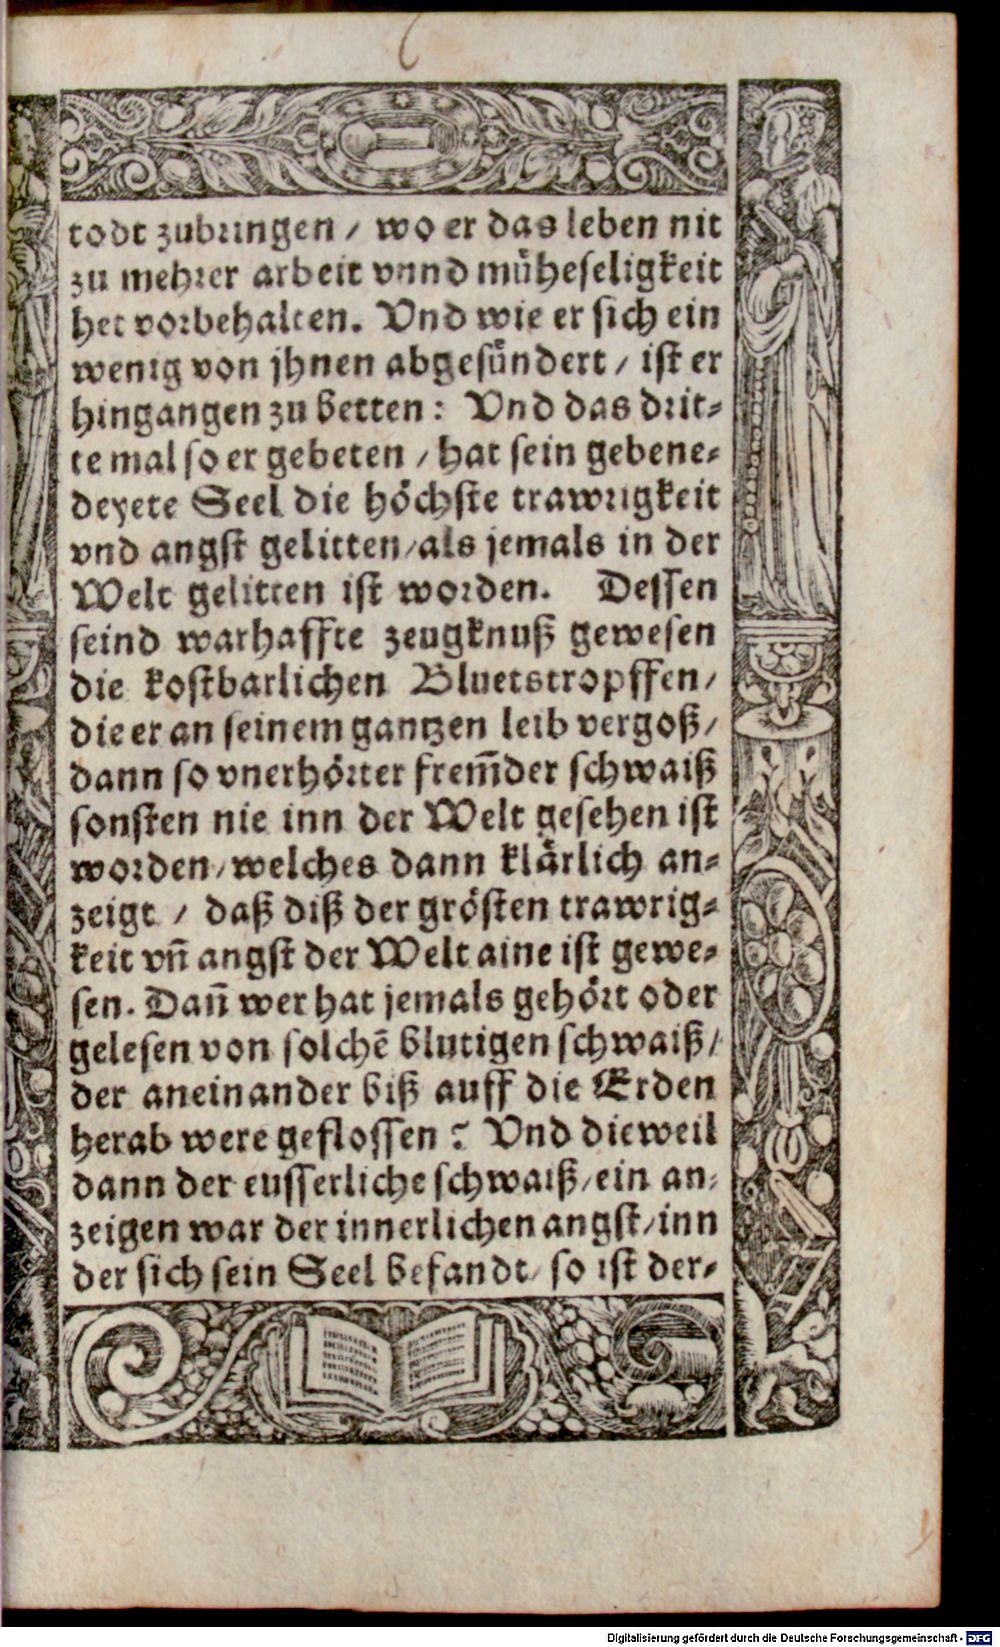 todt zubringen / wo er das leben nit
zu mehrer arbeit vnnd müheseligkeit
het vorbehalten. Vnd wie er sich ein
wenig von jhnen abgesündert / ist er
hingangen zu betten: Vnd das drit-
te mal so er gebeten / hat sein gebene-
deyete Seel die höchste trawrigkeit
vnd angst gelitten/als jemals in der
Welt gelitten ist worden. Dessen
seind warhaffte zeugknuß gewesen
die kostbarlichen Bluetstropffen/
die er an seinem gantzen leib vergoß/
dann so vnerhörter frem̃der schwaiß
sonsten nie inn der Welt gesehen ist
worden/welches dann klärlich an-
zeigt / daß diß der grösten trawrig-
keit vn̄ angst der Welt aine ist gewe-
sen. Dan̄ wer hat jemals gehört oder
gelesen von solchē blutigen schwaiß/
der aneinander biß auff die Erden
herab were geflossen? Vnd dieweil
dann der eusserliche schwaiß/ein an-
zeigen war der innerlichen angst/inn
der sich sein Seel befandt/ so ist der-
Digitalisierung gefördert durch die Deutsche Forschungsgemeinschaft - DFG